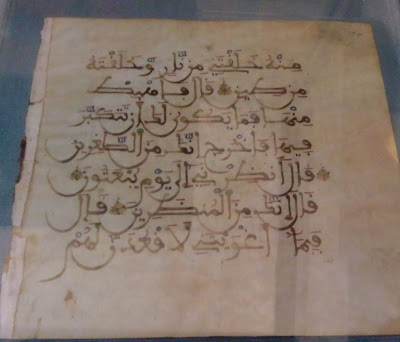 مِنْهُ خَلَقْتَنِي مِن نَّارٍ وَّخَلَقْتَهُ
مِن طِينٍ قَالَ فَاهْبِطْ
مِنْهَا فَمَا يَكُونُ لَكَ أَن تَتَكَبَّرَ
فِيهَا فَاخْرُجْ إِنَّكَ مِنَ الصَّغِرِينَ
قَالَ أَنظِرْنِي إِلَى يَوْمِ يُبْعَثُونَ
قَالَ إِنَّكَ مِنَ الْمُنظَرِينَ قَالَ
فَبِمَا أَغْوَيْتَنِي لَأَقْعُدَنَّ لَهُمْ